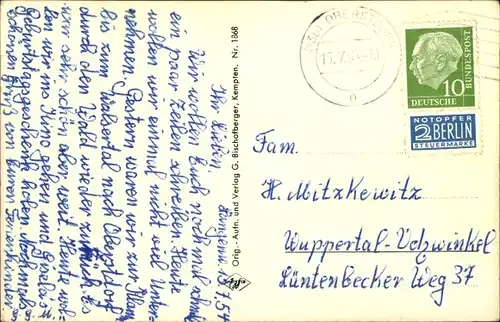 Jungsau, 13.7.54
Ihr Lieben,
Wir wollen Euch noch mal schnell
ein paar Zeilen schreiben. Heute
wollen wir einmal nicht viel Unter-
nehmen. Gestern waren wir zur Alm
bis zum Walsertal nach Oberstdorf
durch den Wald wieder zurück. Es
war sehr schön aber weit. Heute wol-
len wir ins Kino gehen und
Geburtstagsgeschenk holen. Nochmals
schönen Gruß von Euren Ferienkinder
Orig.- Aufn. und Verlag G. Bischofberger, Kempten. Nr. 1368
OBERSTDORF
15.7.54
10
DEUTSCHE
BUNDESPOST
NOTOPFER
2 BERLIN
STEUERMARKE
Fam.
H. Mitzkewitz
Wuppertal-Vohwinkel
Lüntenbecker Weg 37